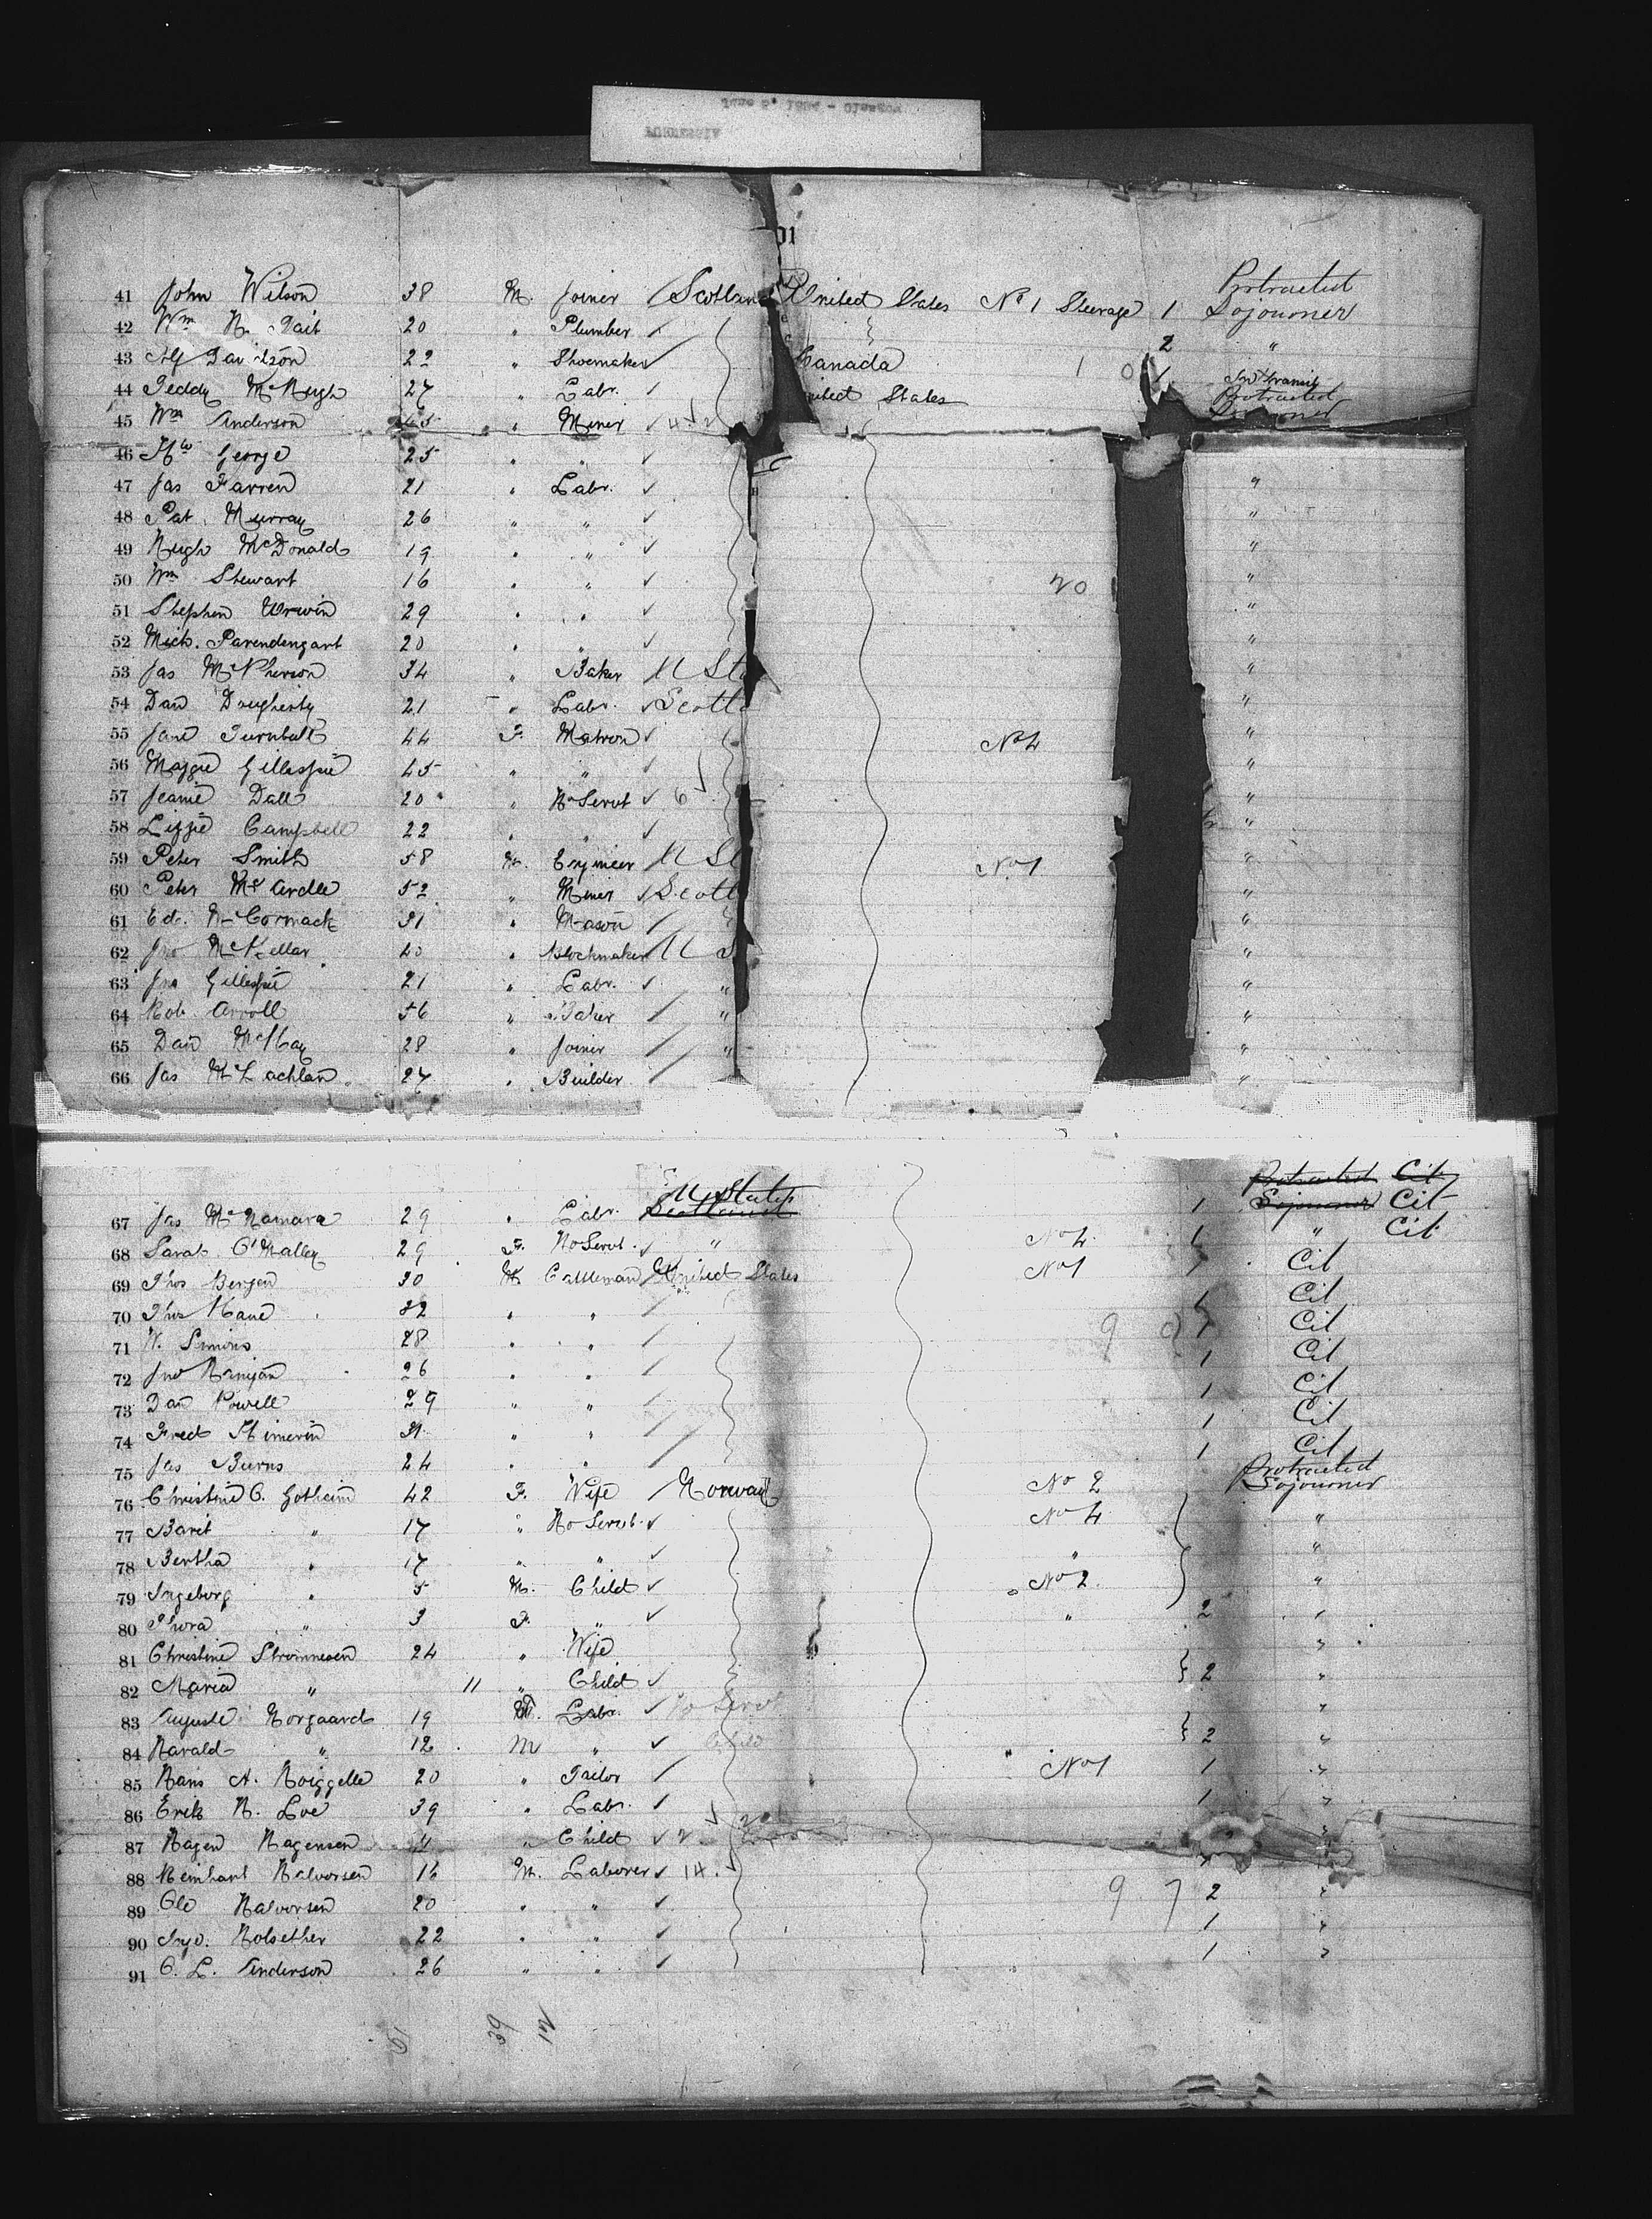 41 John Wilson 38 M. Joiner Scotland United States No 1 Steerage 1 Protracted Sojourner
42 Wm H. Tait 20 " Plumber
43 Alf Davidson 22 " Shoemaker Canada 1 0 2 "
44 Teddy McHugh 27 " Labr. United States 1 In transit
45 Wm Anderson 45 " Miner 4 Protracted Sojourner
46 George 25 " "
47 Jas Farren 21 " Labr. "
48 Pat. Murray 26 " " "
49 Hugh McDonald 19 " " "
50 Wm Stewart 16 " " 20 "
51 Stephen Urwin 29 " " "
52 Mich. Parendengart 20 " " "
53 Jas McPherson 34 " Baker U Sta "
54 Dan Dougherty 21 " Labr. Scotla "
55 Jane Turnbull 44 F. Matron No 4 "
56 Maggie Gillespie 45 " " "
57 Jeanie Dall 20 " Ho Servt 6 "
58 Lizzie Campbell 22 " " "
59 Peter Smith 58 M. Engineer U St No 1 "
60 Peter McArdle 52 " Miner Scotl "
61 Ed. McCormack 31 " Mason "
62 Jno McKellar 40 " Blockmaker U S "
63 Jno Gillespie 21 " Labr. " "
64 Rob Arroll 56 " Baker " "
65 Dan McKay 28 " Joiner " "
66 Jas McLachlan 27 " Builder "
Protracted Cit
67 Jas McNamara 29 " Labr. U States Scotland 1 Sojourner Cit
68 Sarah O'Malley 29 F. Ho Servt. " No 4. 1 " Cit
69 Thos Bergen 30 M Cattleman United States No 1 1 Cit
70 Thos Kane 32 " " 1 Cit
71 W. Simons 28 " " 9 1 Cit
72 Jno Hanigan 26 " " 1 Cit
73 Dan Powell 29 " " 1 Cit
74 Fred 31 " " 1 Cit
75 Jas Burns 24 " " 1 Cit
76 Christine C. Gotheim 42 F. Wife Norway No 2 Protracted Sojourner
77 Barit " 17 " Ho Servt. No 4 "
78 Bertha " 17 " " " "
79 Ingeborg " 5 M. Child No 2. "
80 Thora " 3 F. " " 2 "
81 Christine Stromnesen 24 " Wife "
82 Maria " 11 " Child 2 "
83 Auguste Norgaard 19 M. Labr. Ho Servt "
84 Harald " 12 m " Child 2 "
85 Hans A. Roiggelle 20 " Tailor No 1 1 "
86 Erik N. Loe 39 " Labr. 1 "
87 Hagen Hagensen 11 " Child 2 "
88 Reinhart Halvorsen 16 M. Laborer 14. "
89 Ole Halvorsen 20 " " 9 7 2 "
90 Holsether 22 " " 1 "
91 O. L. Anderson 26 " " 1 "
39 12